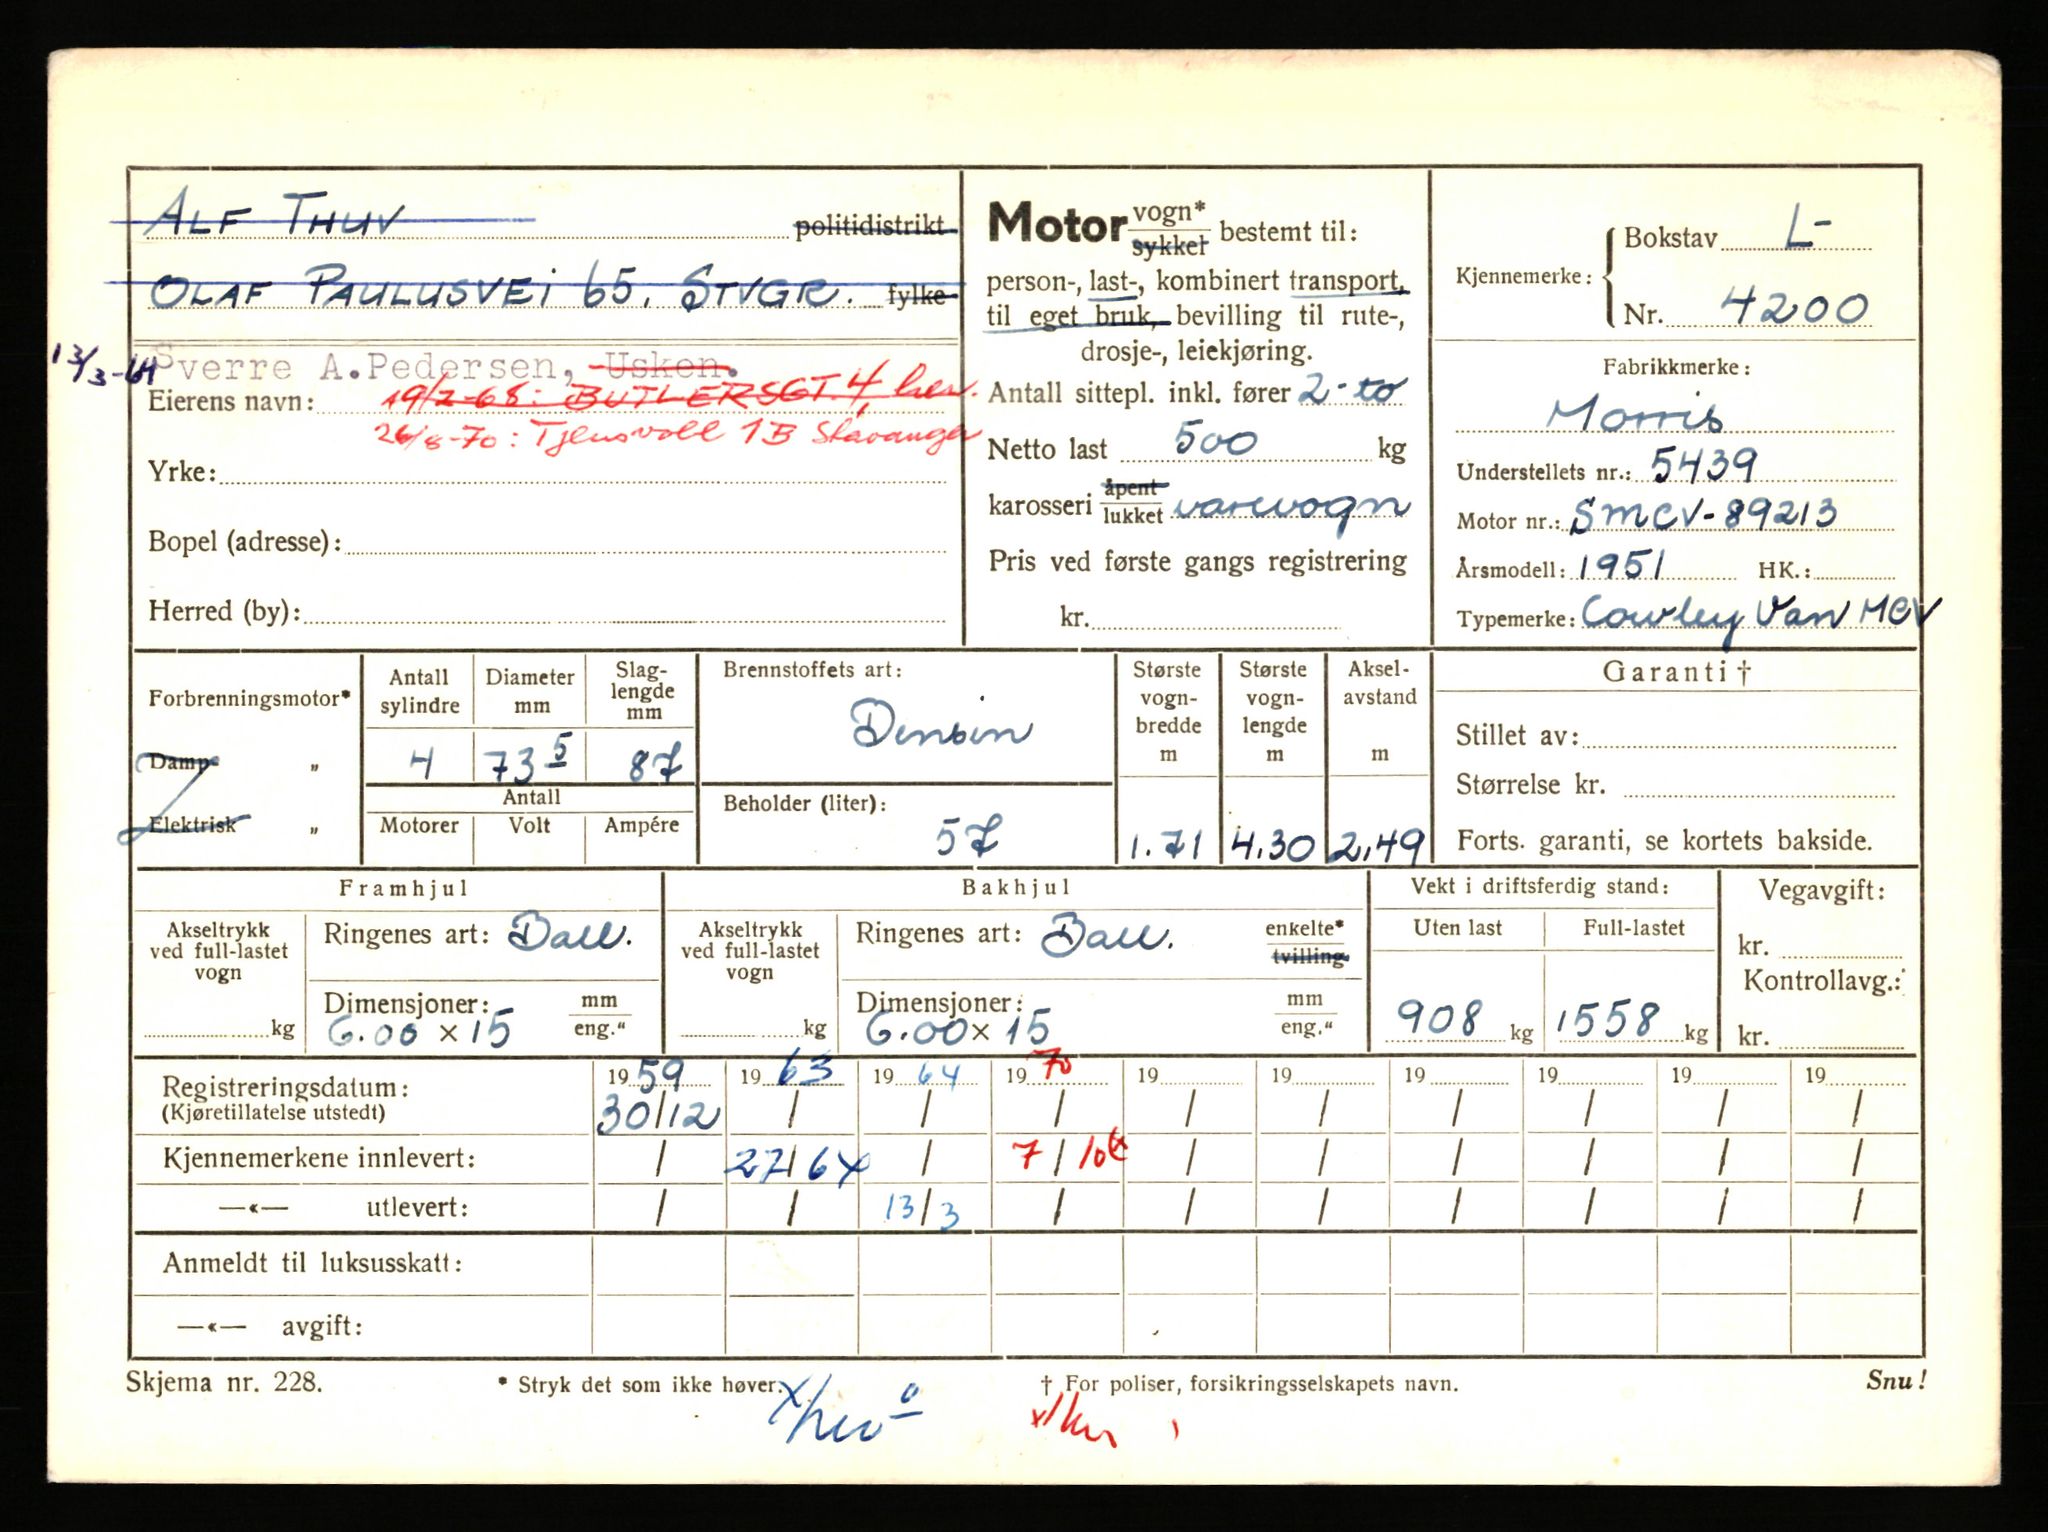 ALF THUV politidistrikt
OLAF PAULUSVEI 65, STVGR. fylke
13/3-64 Sverre A.Pedersen, Usken.
Eierens navn: 19/2-68: BUTLERSGT. 4, her.
26/8-70: Tjensvoll 1B Stavanger
Yrke:
Bopel (adresse):
Herred (by):
Motor vogn* sykkel bestemt til:
person-, last-, kombinert transport,
til eget bruk, bevilling til rute-,
drosje-, leiekjøring.
Antall sittepl. inkl. fører 2-to
Netto last 500 kg
karosseri åpent lukket varevogn
Pris ved første gangs registrering
kr.
Kjennemerke: Bokstav L-
Nr. 4200
Fabrikkmerke:
Morris
Understellets nr.: 5439
Motor nr.: SMCV-89213
Årsmodell: 1951 HK.:
Typemerke: Cowley Van MCV
Forbrenningsmotor*
Damp „
Elektrisk „
Antall sylindre 4
Diameter mm 73 5
Slaglengde mm 87
Antall
Motorer Volt Ampére
Brennstoffets art:
Bensin
Beholder (liter):
57
Største vogn-bredde m 1.71
Største vogn-lengde m 4.30
Aksel-avstand m 2,49
Garanti †
Stillet av:
Størrelse kr.
Forts. garanti, se kortets bakside.
Framhjul
Akseltrykk ved full-lastet vogn
kg
Ringenes art: Ball.
Dimensjoner: mm
6.00 x 15 eng."
Bakhjul
Akseltrykk ved full-lastet vogn
kg
Ringenes art: Ball. enkelte* tvilling
Dimensjoner: mm
6.00 x 15 eng."
Vekt i driftsferdig stand:
Uten last Full-lastet
908 kg 1558 kg
Vegavgift:
kr.
Kontrollavg.:
kr.
Registreringsdatum: 19 59 19 63 19 64 19 70 19 19 19 19 19 19
(Kjøretillatelse utstedt) 30/12 / / / / / / / / /
Kjennemerkene innlevert: / 27/6 x / 7/10 / / / / / /
—«— utlevert: / / 13/3 / / / / / / /
Anmeldt til luksusskatt:
—«— avgift:
Skjema nr. 228. * Stryk det som ikke høver. † For poliser, forsikringsselskapets navn. Snu!